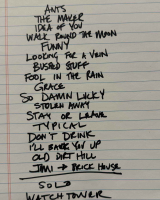 ANTS
THE MAKER
IDEA OF YOU
WALK ROUND THE MOON
FUNNY
LOOKING FOR A VEIN
BUSTED STUFF
FOOL IN THE RAIN
GRACE
SO DAMN LUCKY
STOLEN AWAY
STAY OR LEAVE
TYPICAL
DON'T DRINK
I'LL BACK YOU UP
OLD DIRT HILL
JIMI → BRICK HOUSE
SOLO
WATCHTOWER